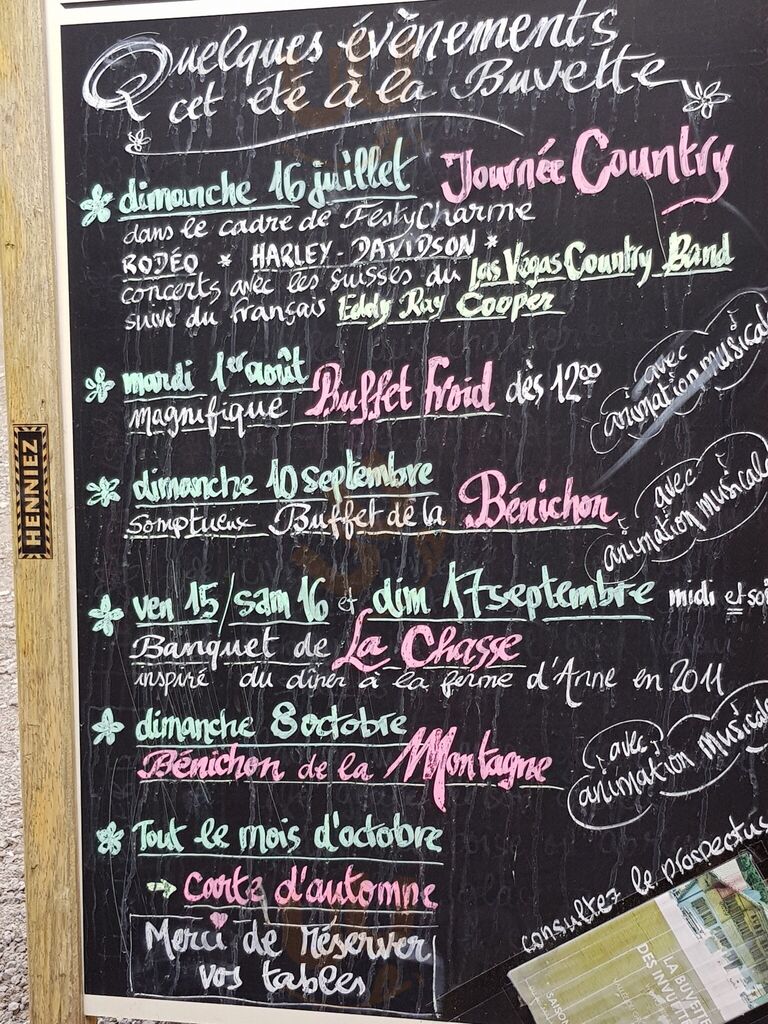 Quelques évènements
cet été à la Buvette
dimanche 16 juillet Journée Country
dans le cadre de FestyCharme
RODÉO * HARLEY-DAVIDSON *
concerts avec les suisses du Las Vegas Country Band
suivi du français Eddy Ray Cooper
mardi 1er août
magnifique Buffet froid dès 12⁰⁰
avec
animation musical
dimanche 10 septembre
somptueux Buffet de la Bénichon
avec
animation musicale
HENNIEZ
ven 15/sam 16 et dim 17 septembre midi et soi
Banquet de La Chasse
inspiré du dîner à la ferme d'Anne en 2011
dimanche 8 octobre
Bénichon de la Montagne
avec
animation musicale
Tout le mois d'octobre
→ Carte d'automne
Merci de réserver
vos tables
consultez le prospectus
LA BUVETTE
DES INVU
SAISON